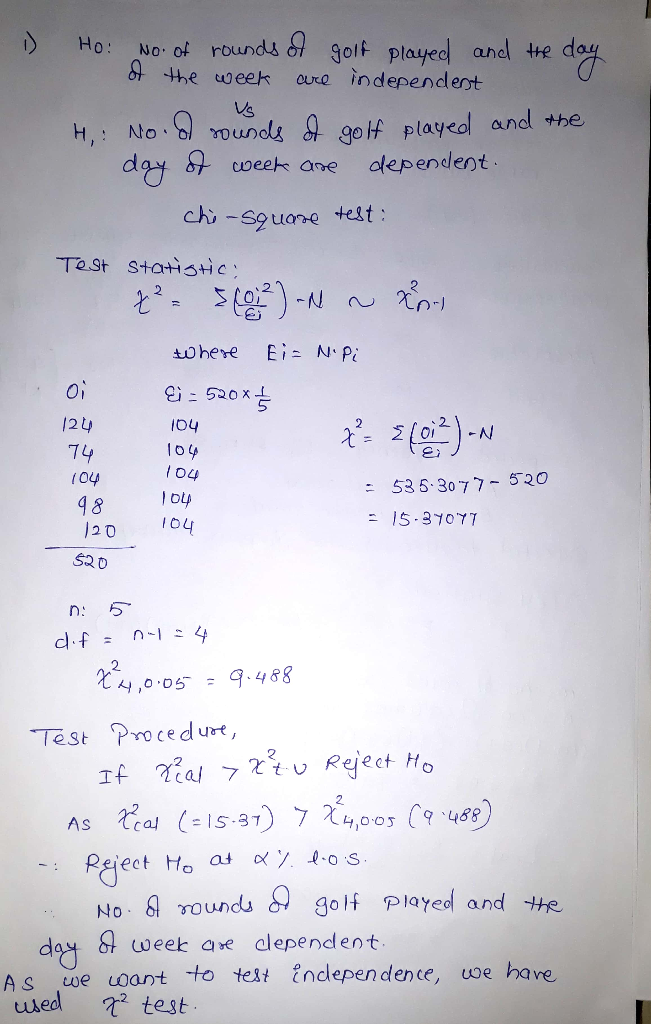 i) Ho: No. of rounds of golf played and the day
of the week are independent
Vs
H,: No. of rounds of golf played and the
day of week are dependent.
chi-square test:
Test statistic:
χ² = Σ(Oi²/Ei) - N ~ χ²n-1
where Ei = N·Pi
Oi Ei = 520 x 1/5
124 104
74 104
104 104
98 104
120 104
520
χ² = Σ(Oi²/Ei) - N
= 535.3077 - 520
= 15.37077
n: 5
d.f = n-1 = 4
χ²4,0.05 = 9.488
Test Procedure,
If χ²cal > χ²t v Reject Ho
As χ²cal (=15.37) > χ²4,0.05 (9.488)
-: Reject Ho at α % l.o.s.
No. of rounds of golf played and the
day of week are dependent.
As we want to test independence, we have
used χ² test.